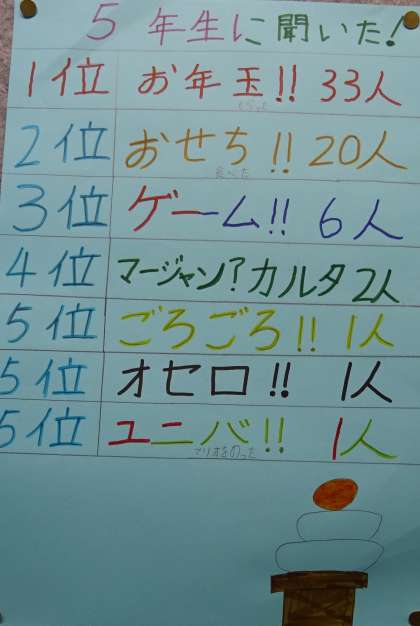 5年生に聞いた!
1位 お年玉!! 33人
もらった
2位 おせち!! 20人
食べた
3位 ゲーム!! 6人
4位 マージャン?カルタ2人
5位 ごろごろ!! 1人
5位 オセロ!! 1人
5位 ユニバ!! 1人
マリオをのった